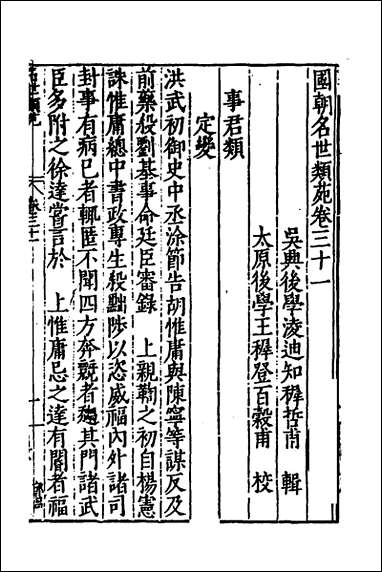 國朝名世類苑卷三十一
吳興後學凌迪知稺哲甫 輯
太原後學王穉登百穀甫 校
事君類
定變
洪武初御史中丞涂節告胡惟庸與陳寧等謀反及
前藥殺劉基事命廷臣審錄 上親鞫之初自楊憲
誅惟庸總中書政專生殺黜陟以恣威福內外諸司
封事有病巳者輒匿不聞四方奔競者趨其門諸武
臣多附之徐達嘗言於 上惟庸忌之達有閽者福